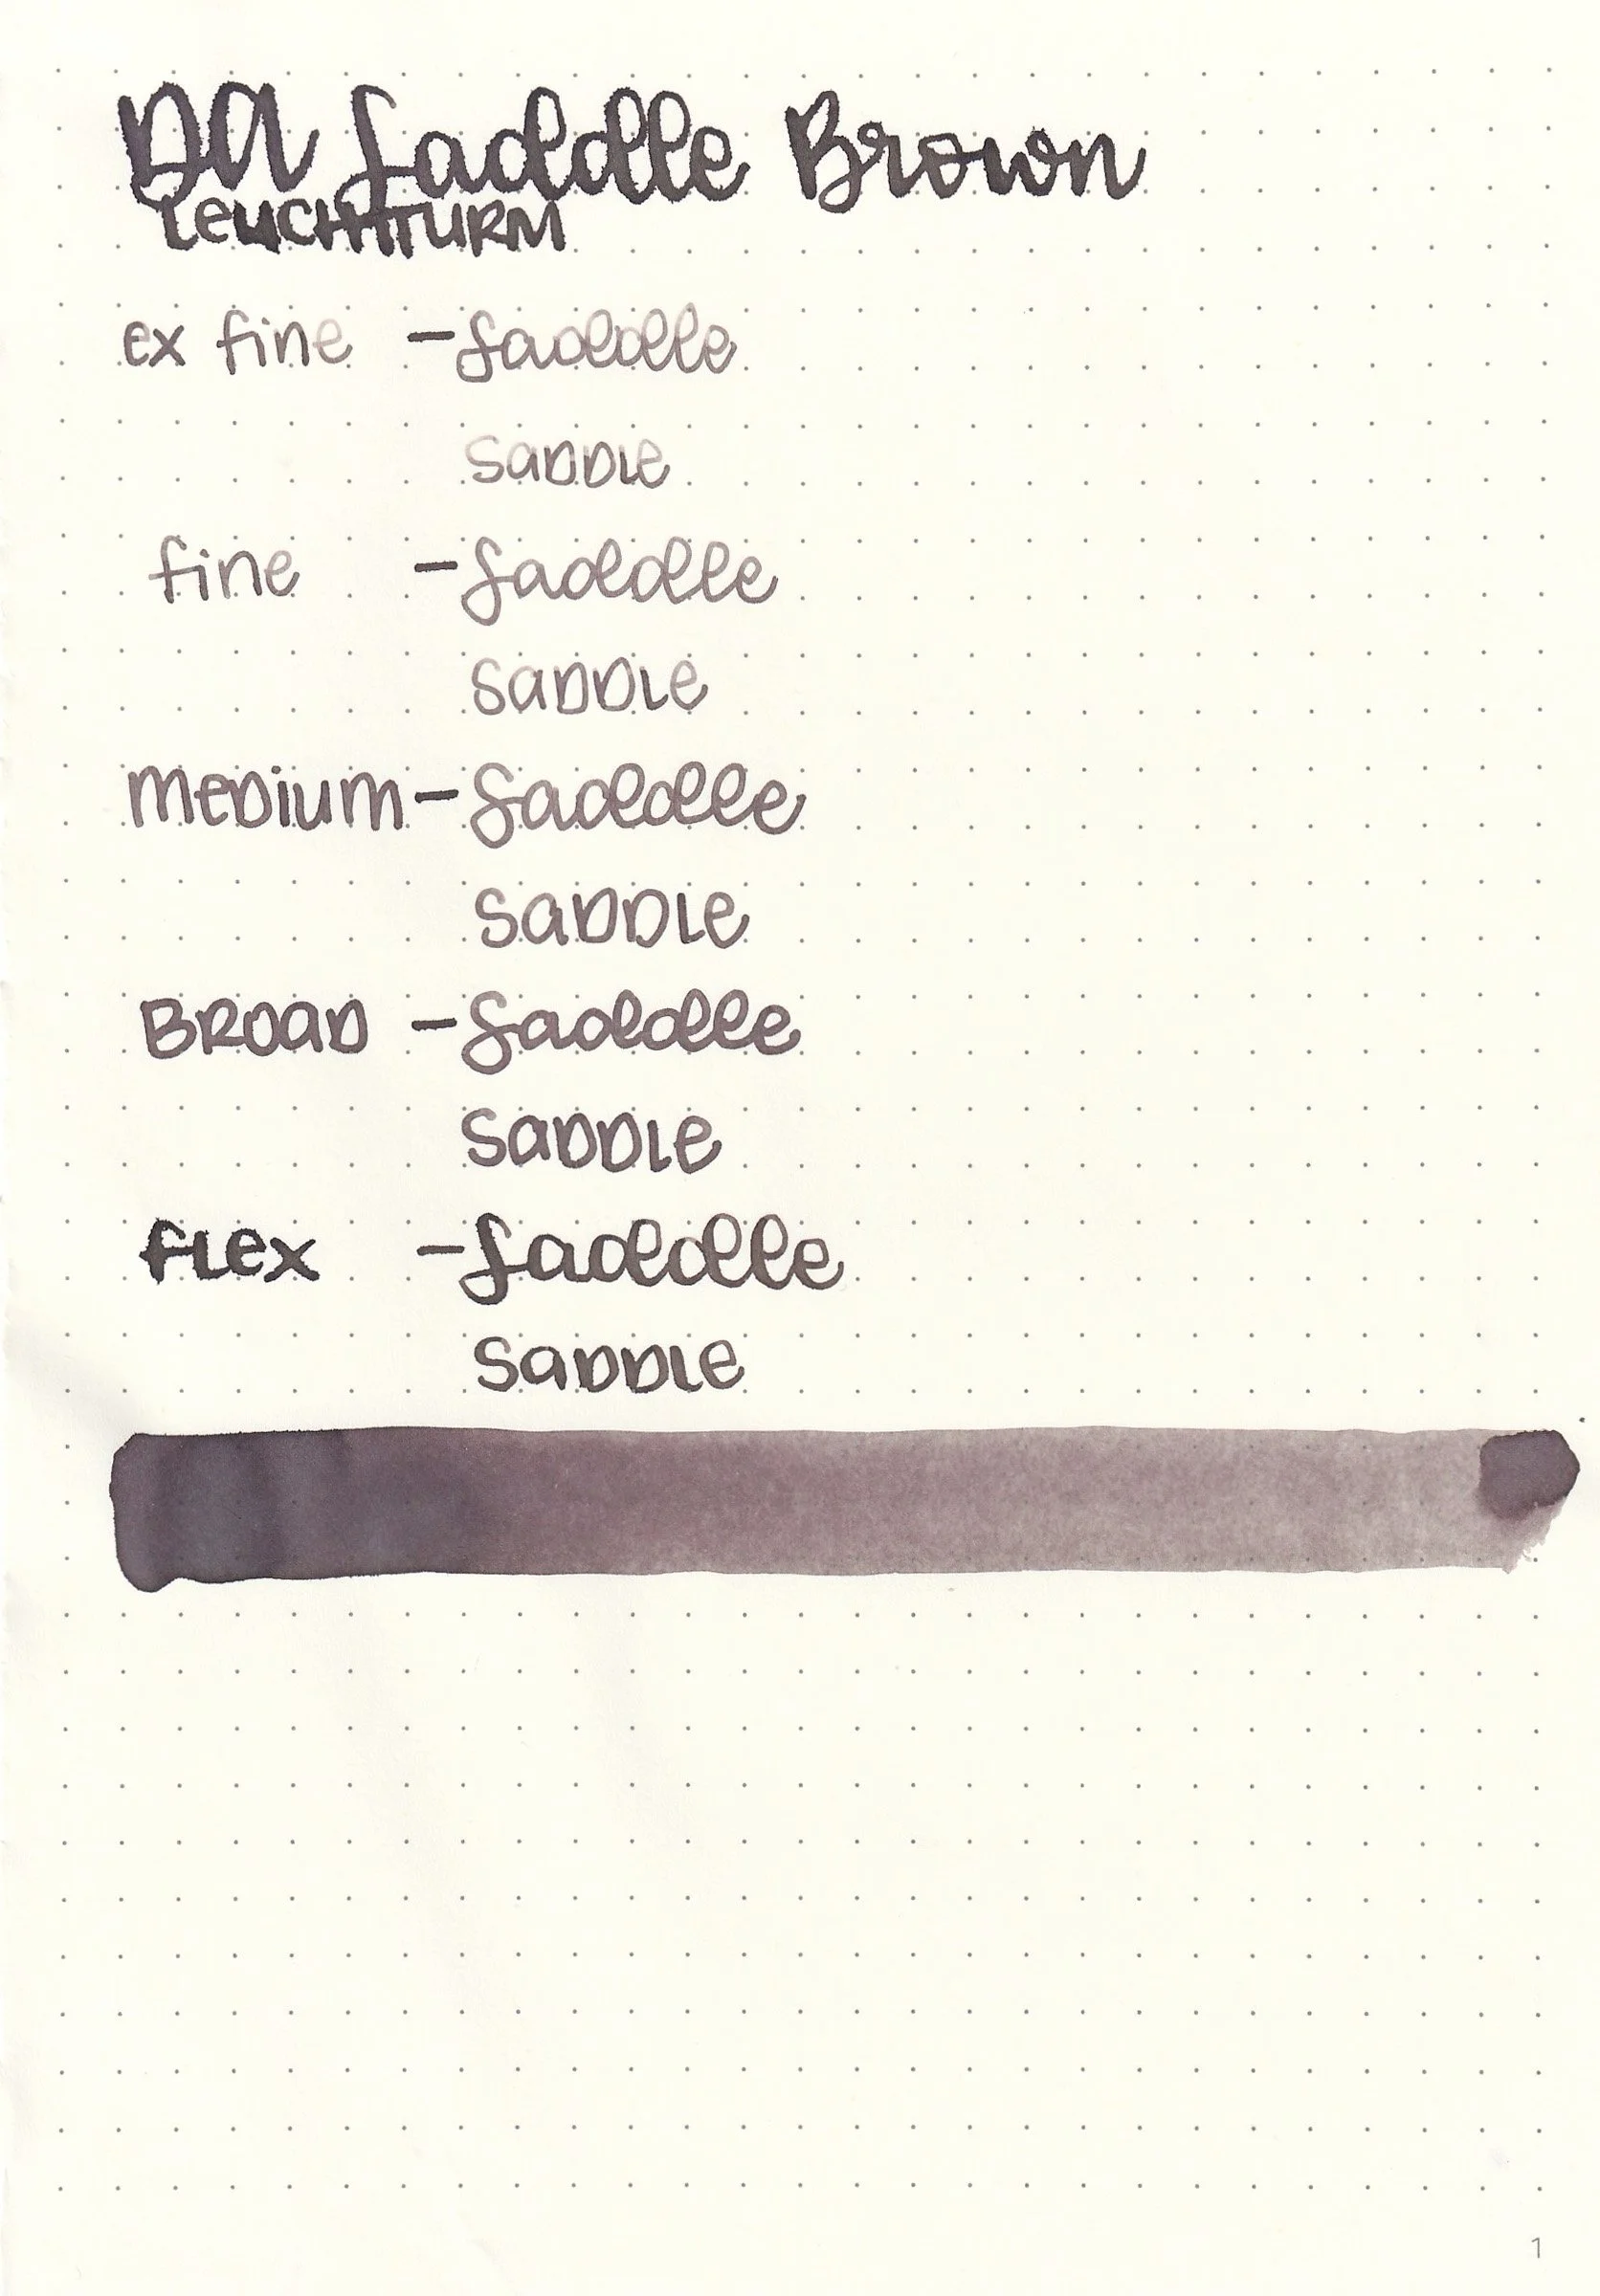 DA Saddle Brown
LEUCHTTURM
ex fine - Saddle
SaDDLe
fine - Saddle
SaDDLe
MeDium - Saddle
SaDDLe
BROaD - Saddle
SaDDLe
fLex - Saddle
SaDDLe
1